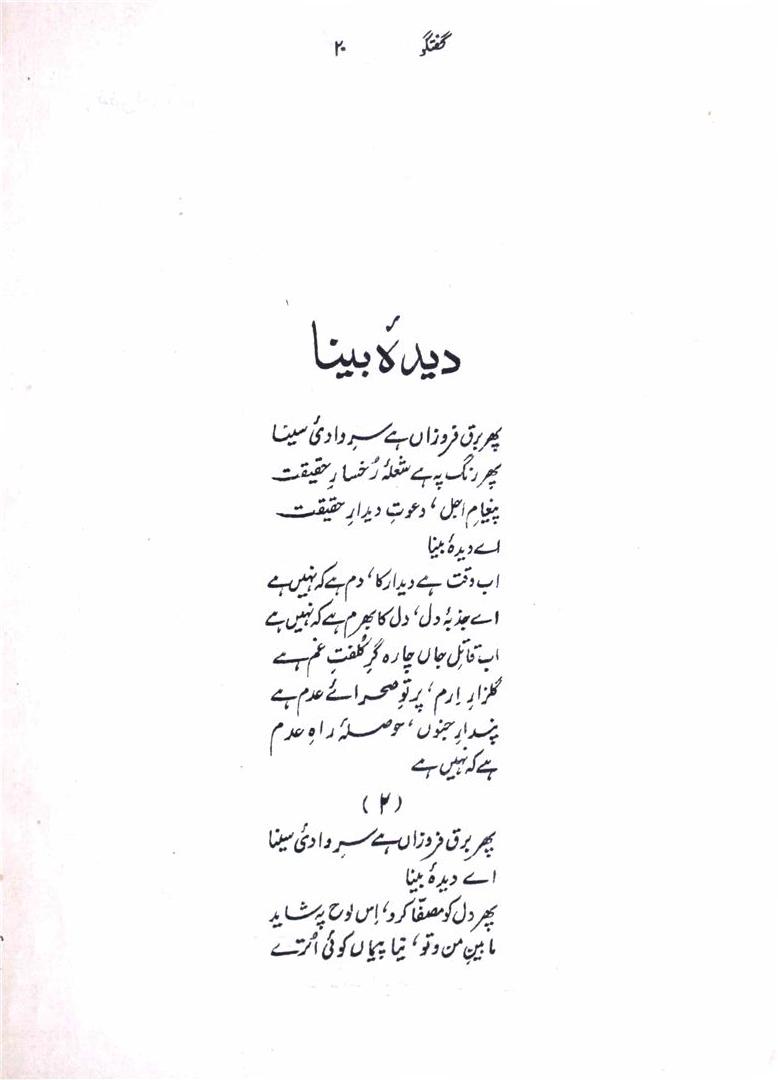 گفتگو ۲۰
دیدۂ بینا
پھر برق فروزاں ہے سرِ وادیٔ سینا
پھر رنگ پہ ہے شعلۂ رُخسارِ حقیقت
پیغامِ اجل، دعوتِ دیدارِ حقیقت
اے دیدۂ بینا
اب وقت ہے دیدار کا، دم ہے کہ نہیں ہے
اے جذبۂ دل، دل کا بھرم ہے کہ نہیں ہے
اب قاتلِ جاں چارہ گرِ کُلفتِ غم ہے
گلزارِ اِرم، پرتوِ صحرائے عدم ہے
پندارِ جنوں، حوصلۂ راہِ عدم
ہے کہ نہیں ہے
(۲)
پھر برق فروزاں ہے سرِ وادیٔ سینا
اے دیدۂ بینا
پھر دل کو مصفّا کرو، اِس لوح پہ شاید
مابینِ من و تو، نیا پیماں کوئی اُترے